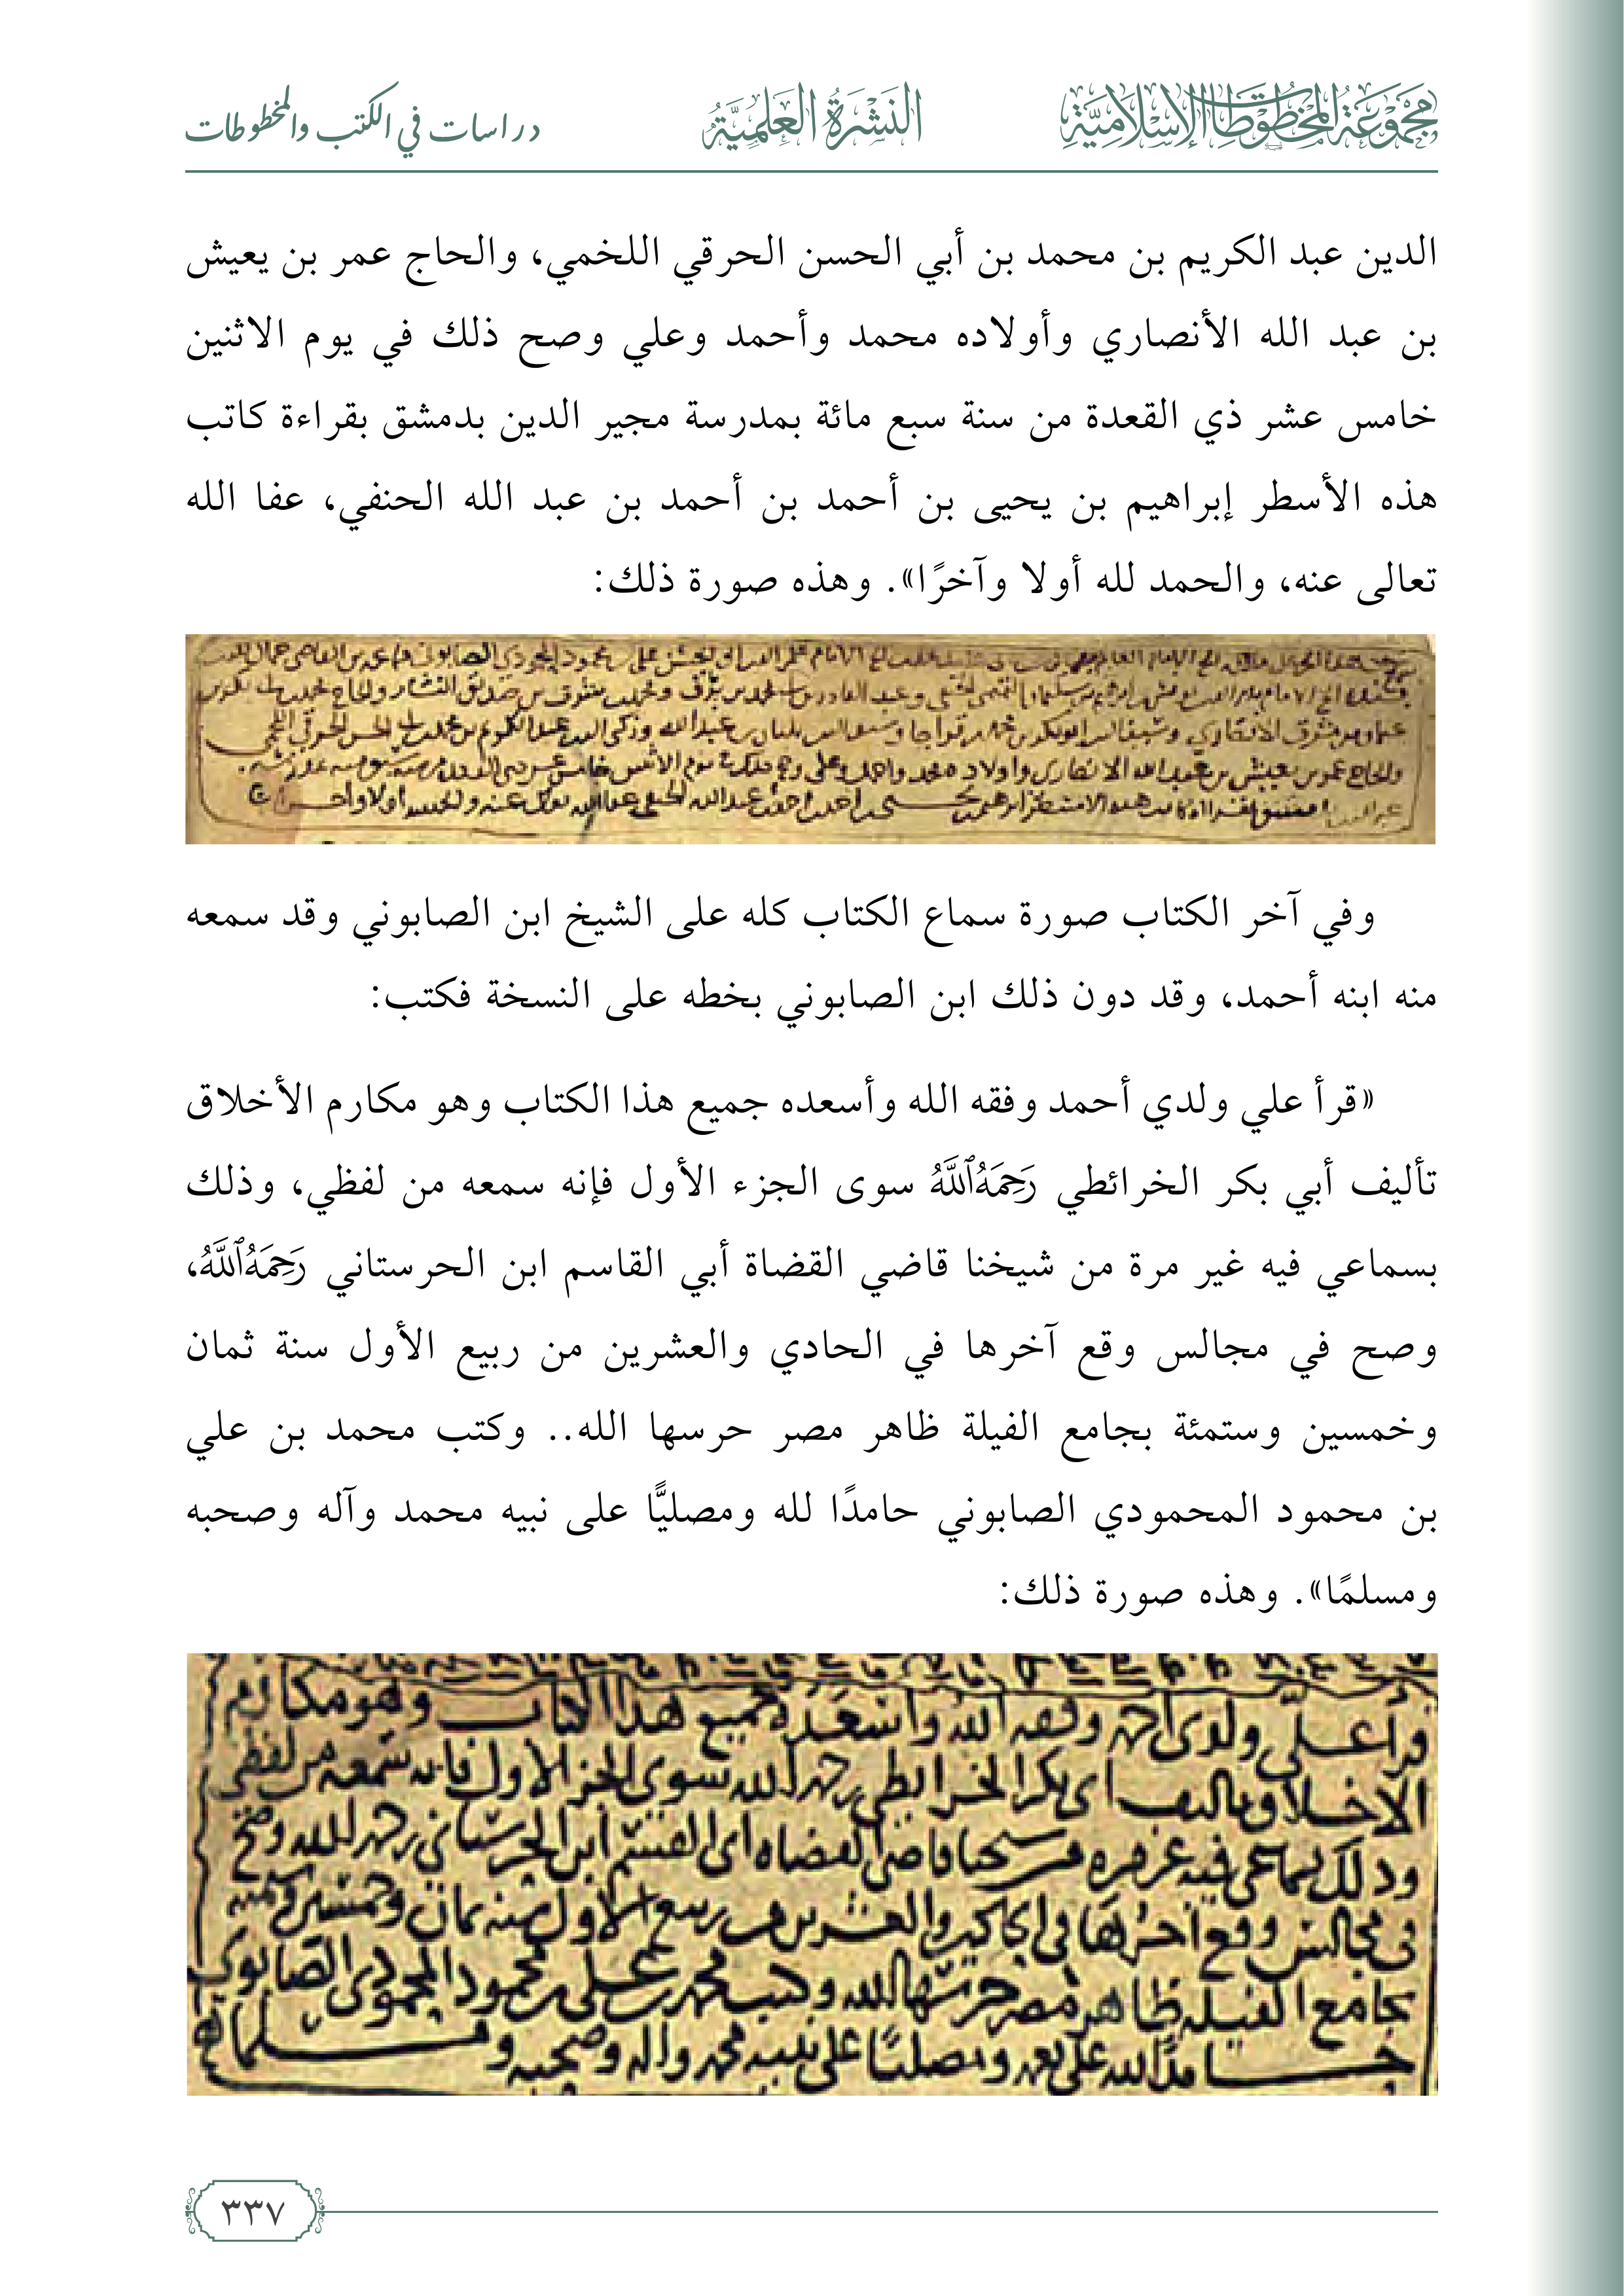 مجموعة المخطوطات الإسلامية
النَّشْرَةُ العِلْمِيَّةُ
دراسات في الكتب والمخطوطات
الدين عبد الكريم بن محمد بن أبي الحسن الحرقي اللخمي، والحاج عمر بن يعيش
بن عبد الله الأنصاري وأولاده محمد وأحمد وعلي وصح ذلك في يوم الاثنين
خامس عشر ذي القعدة من سنة سبع مائة بمدرسة مجير الدين بدمشق بقراءة كاتب
هذه الأسطر إبراهيم بن يحيى بن أحمد بن أحمد بن عبد الله الحنفي، عفا الله
تعالى عنه، والحمد لله أولا وآخرًا». وهذه صورة ذلك:
وفي آخر الكتاب صورة سماع الكتاب كله على الشيخ ابن الصابوني وقد سمعه
منه ابنه أحمد، وقد دون ذلك ابن الصابوني بخطه على النسخة فكتب:
«قرأ علي ولدي أحمد وفقه الله وأسعده جميع هذا الكتاب وهو مكارم الأخلاق
تأليف أبي بكر الخرائطي رَحِمَهُ ٱللَّهُ سوى الجزء الأول فإنه سمعه من لفظي، وذلك
بسماعي فيه غير مرة من شيخنا قاضي القضاة أبي القاسم ابن الحرستاني رَحِمَهُ ٱللَّهُ،
وصح في مجالس وقع آخرها في الحادي والعشرين من ربيع الأول سنة ثمان
وخمسين وستمئة بجامع الفيلة ظاهر مصر حرسها الله.. وكتب محمد بن علي
بن محمود المحمودي الصابوني حامدًا لله ومصليًّا على نبيه محمد وآله وصحبه
ومسلمًا». وهذه صورة ذلك:
قرأ علي ولدي احمد وفقه الله واسعده جميع هذا الكتاب وهو مكارم
الاخلاق تاليف ابي بكر الخرايطي رحمه الله سوى الجزء الاول فانه سمعه من لفظي
وذلك بسماعي فيه غير مره من شيخنا قاضي القضاه ابي القسم ابن الحرستاني رحمه الله وصح
في مجالس وقع اخرها في الحادي والعشرين من ربيع الاول سنه ثمان وخمسين وستمئه
بجامع الفيله ظاهر مصر حرسها الله وكتب محمد بن علي بن محمود المحمودي الصابوني
حامدا لله على نعمه ومصليا على نبيه محمد واله وصحبه ومسلما
٣٣٧